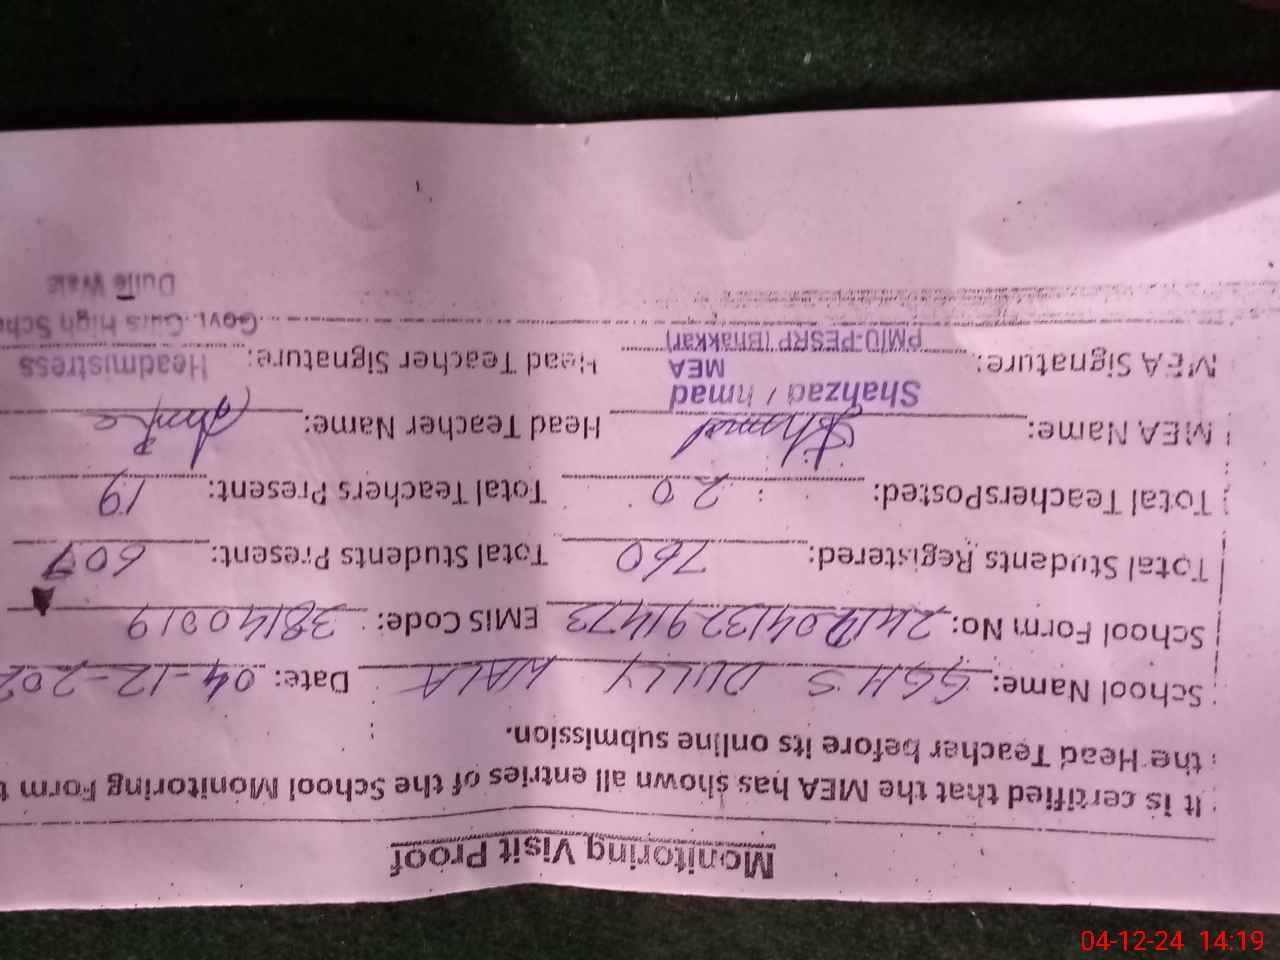 Monitoring Visit Proof
It is certified that the MEA has shown all entries of the School Monitoring Form t
the Head Teacher before its online submission.
School Name: GGHS DULLY WALA Date: 04-12-202
School Form No: EMIS Code: 38140019
Total Students Registered: 760 Total Students Present: 607
Total TeachersPosted: 20 Total Teachers Present: 19
MEA Name: Head Teacher Name:
Shahzad Ahmad
MEA
MEA Signature: PMIU-PESRP (Bhakkar) Head Teacher Signature: Headmistress
Govt. Girls High Scho
Dulle Wala
04-12-24 14:19